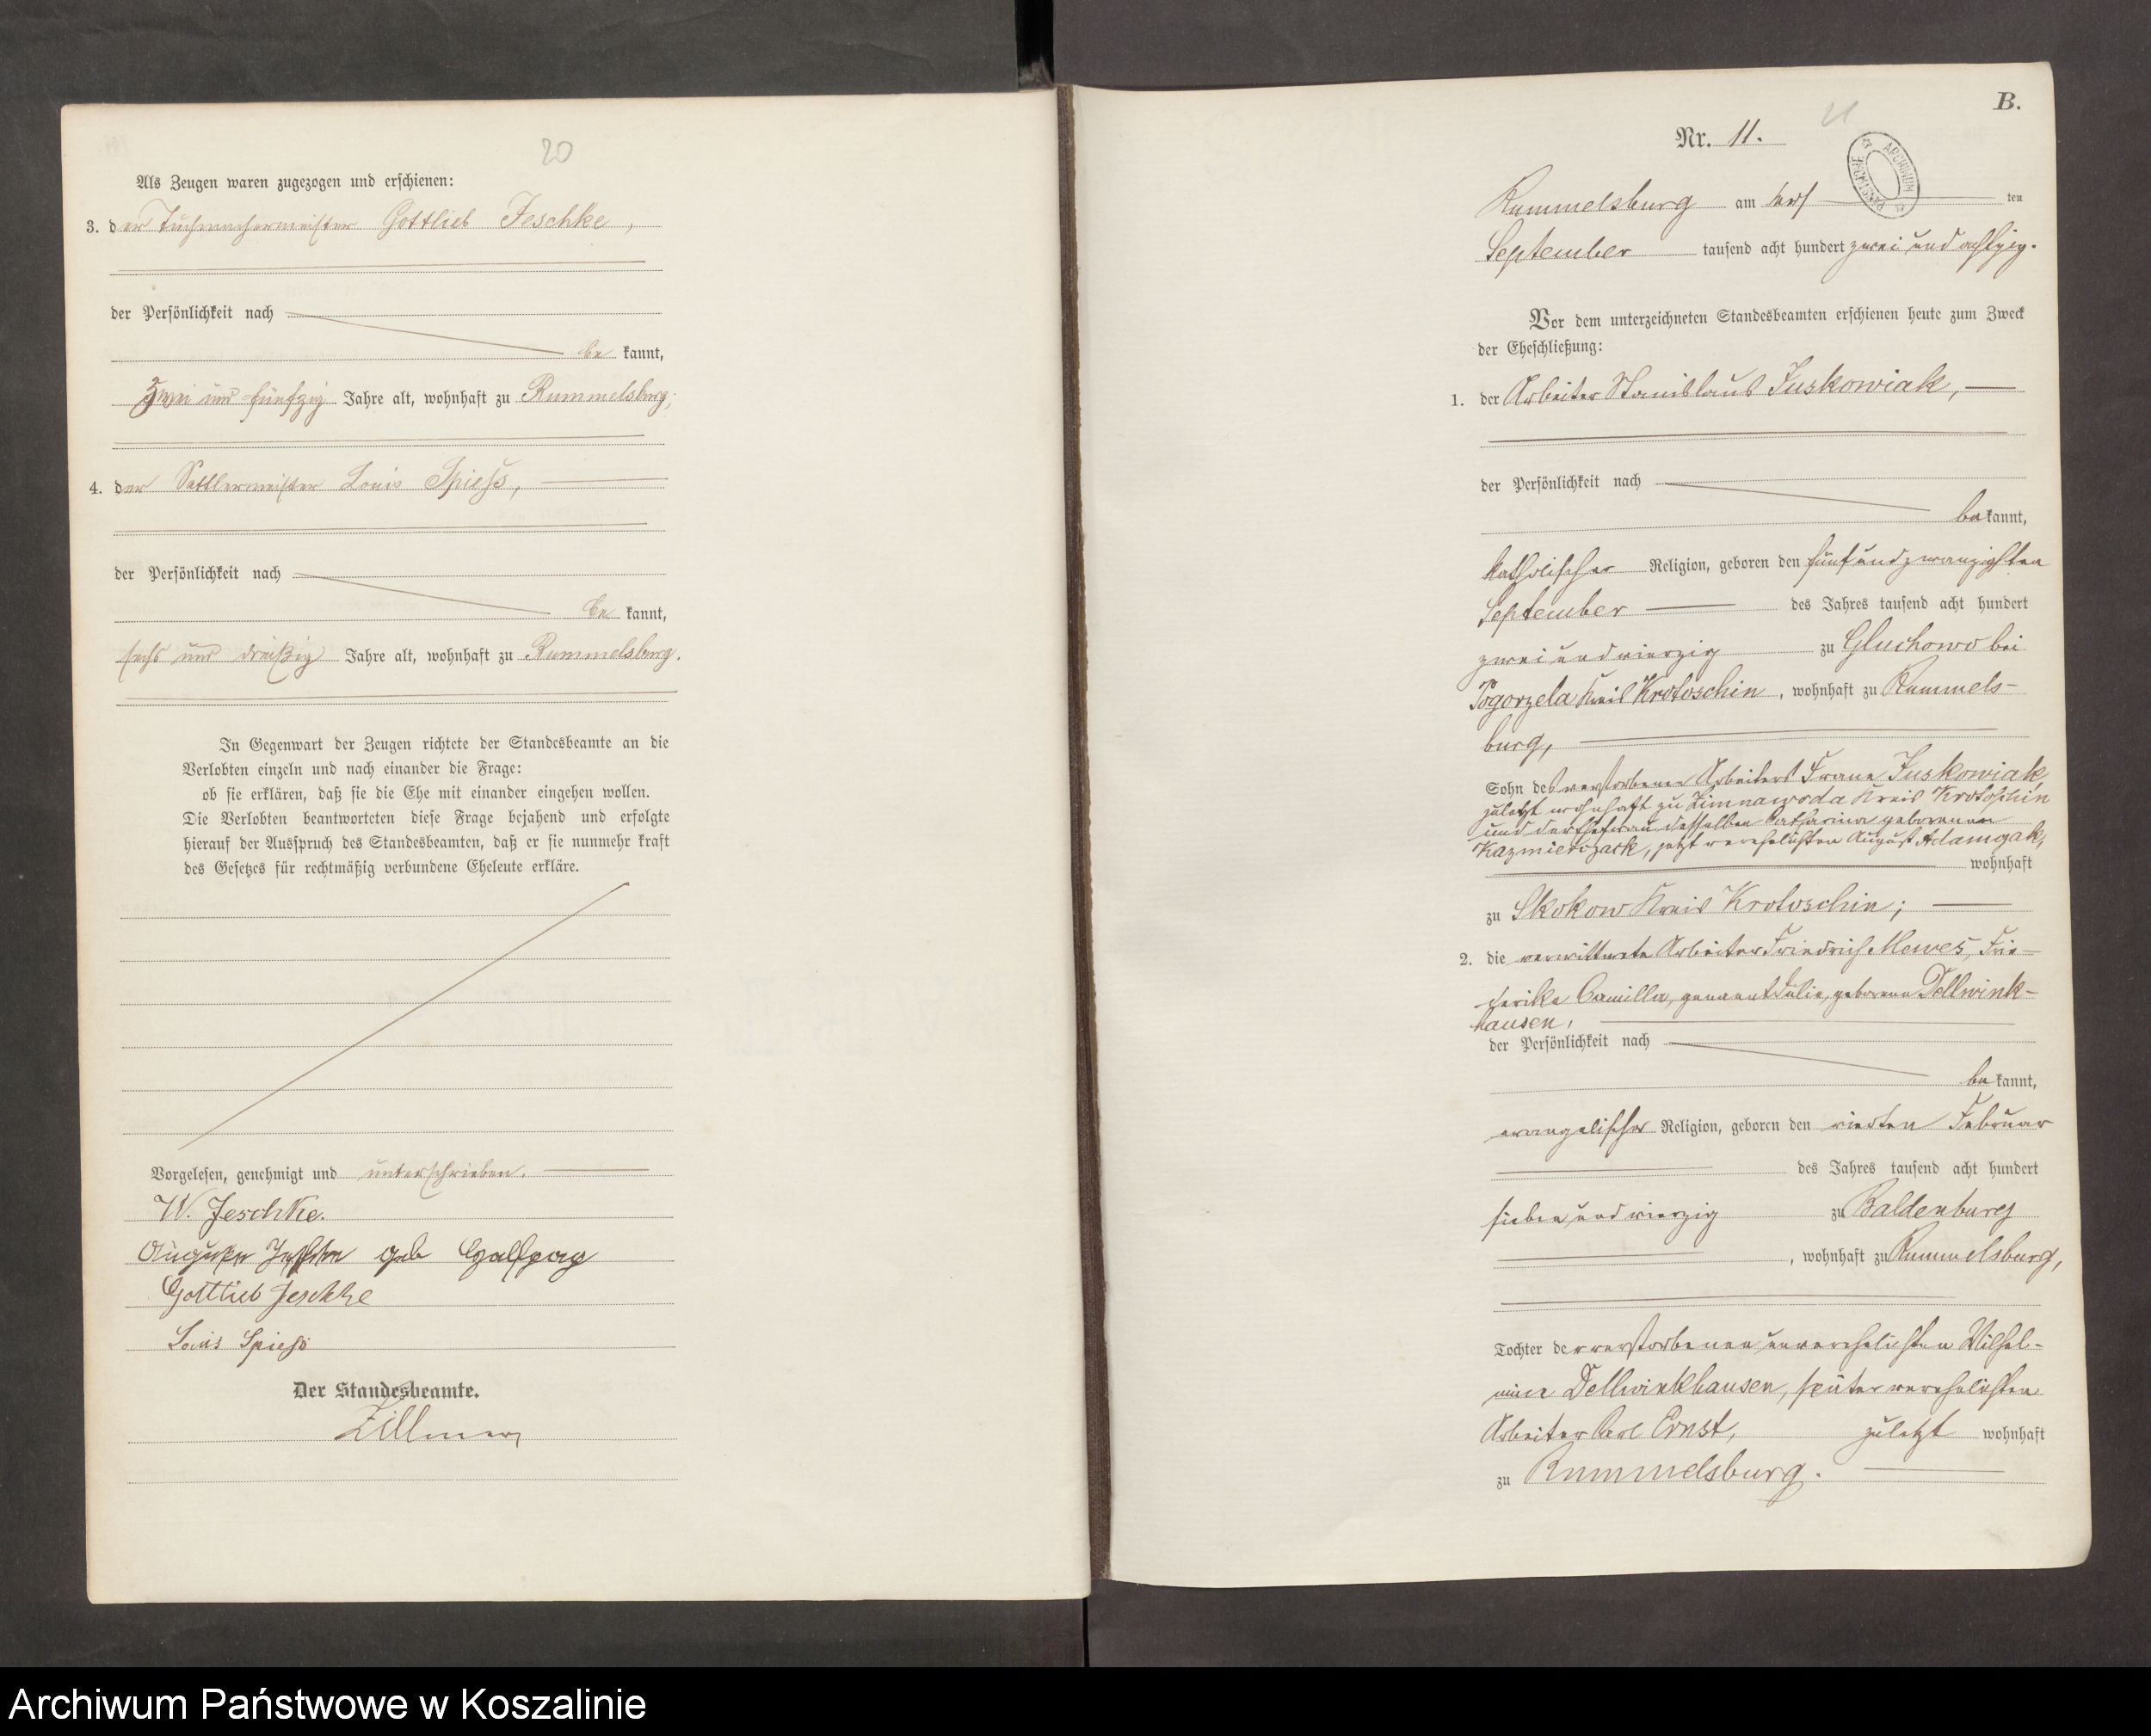 20
Als Zeugen waren zugezogen und erschienen:
3. der Tuchmachermeister Gottlieb Jeschke,
der Persönlichkeit nach
be kannt,
zwei und fünfzig Jahre alt, wohnhaft zu Rummelsburg;
4. der Sattlermeister Louis Spieß,
der Persönlichkeit nach
be kannt,
sechs und dreißig Jahre alt, wohnhaft zu Rummelsburg.
In Gegenwart der Zeugen richtete der Standesbeamte an die
Verlobten einzeln und nach einander die Frage:
ob sie erklären, daß sie die Ehe mit einander eingehen wollen.
Die Verlobten beantworteten diese Frage bejahend und erfolgte
hierauf der Ausspruch des Standesbeamten, daß er sie nunmehr kraft
des Gesetzes für rechtmäßig verbundene Eheleute erkläre.
Vorgelesen, genehmigt und unterschrieben.
W. Jeschke.
geb
Gottlieb Jeschke
Louis Spieß
Der Standesbeamte.
Zillmer
B.
Nr. 11.
ARCHIWUM PAŃSTWOWE
Rummelsburg am ten
September tausend acht hundert zwei und achtzig.
Vor dem unterzeichneten Standesbeamten erschienen heute zum Zweck
der Eheschließung:
1. der Arbeiter Stanislaus Juskowiak,
der Persönlichkeit nach
bekannt,
katholischer Religion, geboren den fünfundzwanzigsten
September des Jahres tausend acht hundert
zwei und vierzig zu Gluchowo bei
Pogorzela Kreis Krotoschin, wohnhaft zu Rummels-
burg,
Sohn des verstorbenen Arbeiters Franz Juskowiak,
zuletzt wohnhaft zu Zimnawoda Kreis Krotoschin
und der Ehefrau desselben Catharina geborenen
Kazmierczack, jetzt verehelichten August Adamczak,
wohnhaft
zu Skokow Kreis Krotoschin;
2. die verwittwete Arbeiter Friedrich Mewes, Frie-
derike Camilla, genannt Julie, geborene Dellwink-
hausen,
der Persönlichkeit nach
be kannt,
evangelischer Religion, geboren den vierten Februar
des Jahres tausend acht hundert
sieben und vierzig zu Baldenburg
, wohnhaft zu Rummelsburg,
Tochter der verstorbenen unverehelichten Wilhel-
mine Dellwinkhausen, später verehelichten
Arbeiter Carl Ernst, zuletzt wohnhaft
zu Rummelsburg.
Archiwum Państwowe w Koszalinie